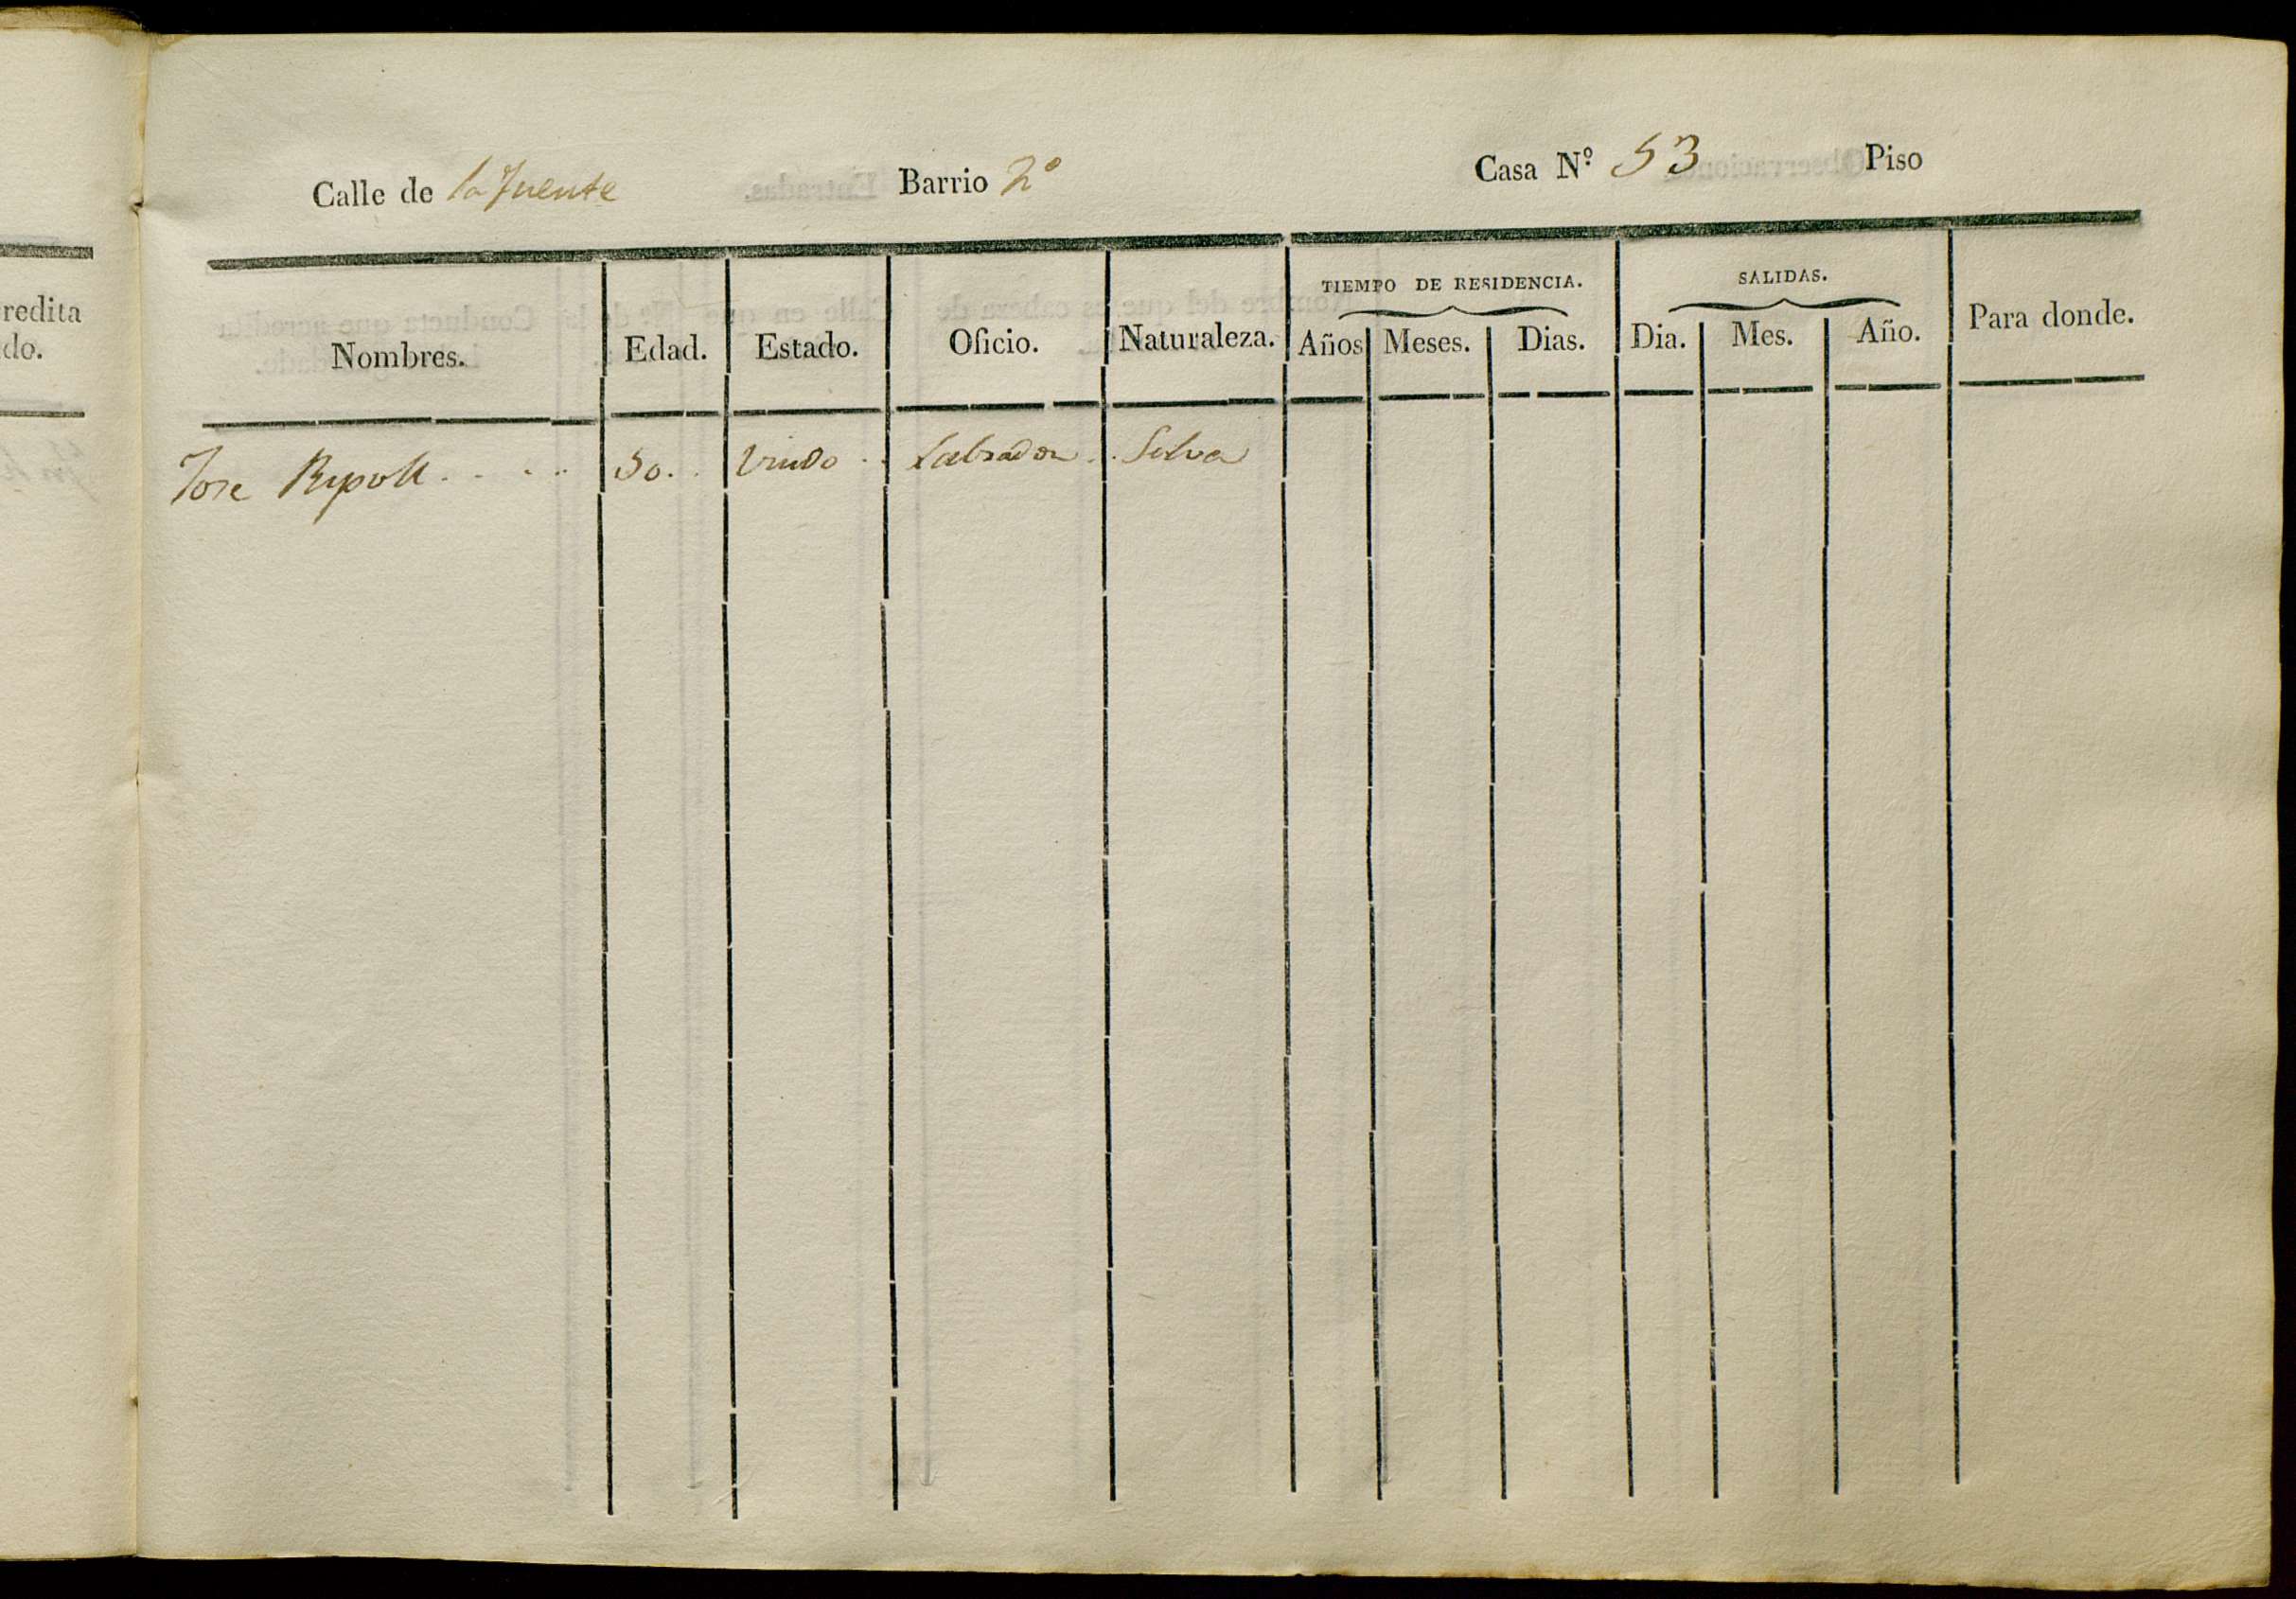 Calle de la fuente Barrio 2º Casa N.º 53 Piso
redita
do.
TIEMPO DE RESIDENCIA. SALIDAS.
Nombres. Edad. Estado. Oficio. Naturaleza. Años Meses. Dias. Dia. Mes. Año. Para donde.
Jose Ripoll..... 50.. Viudo.. Labrador.. Selva